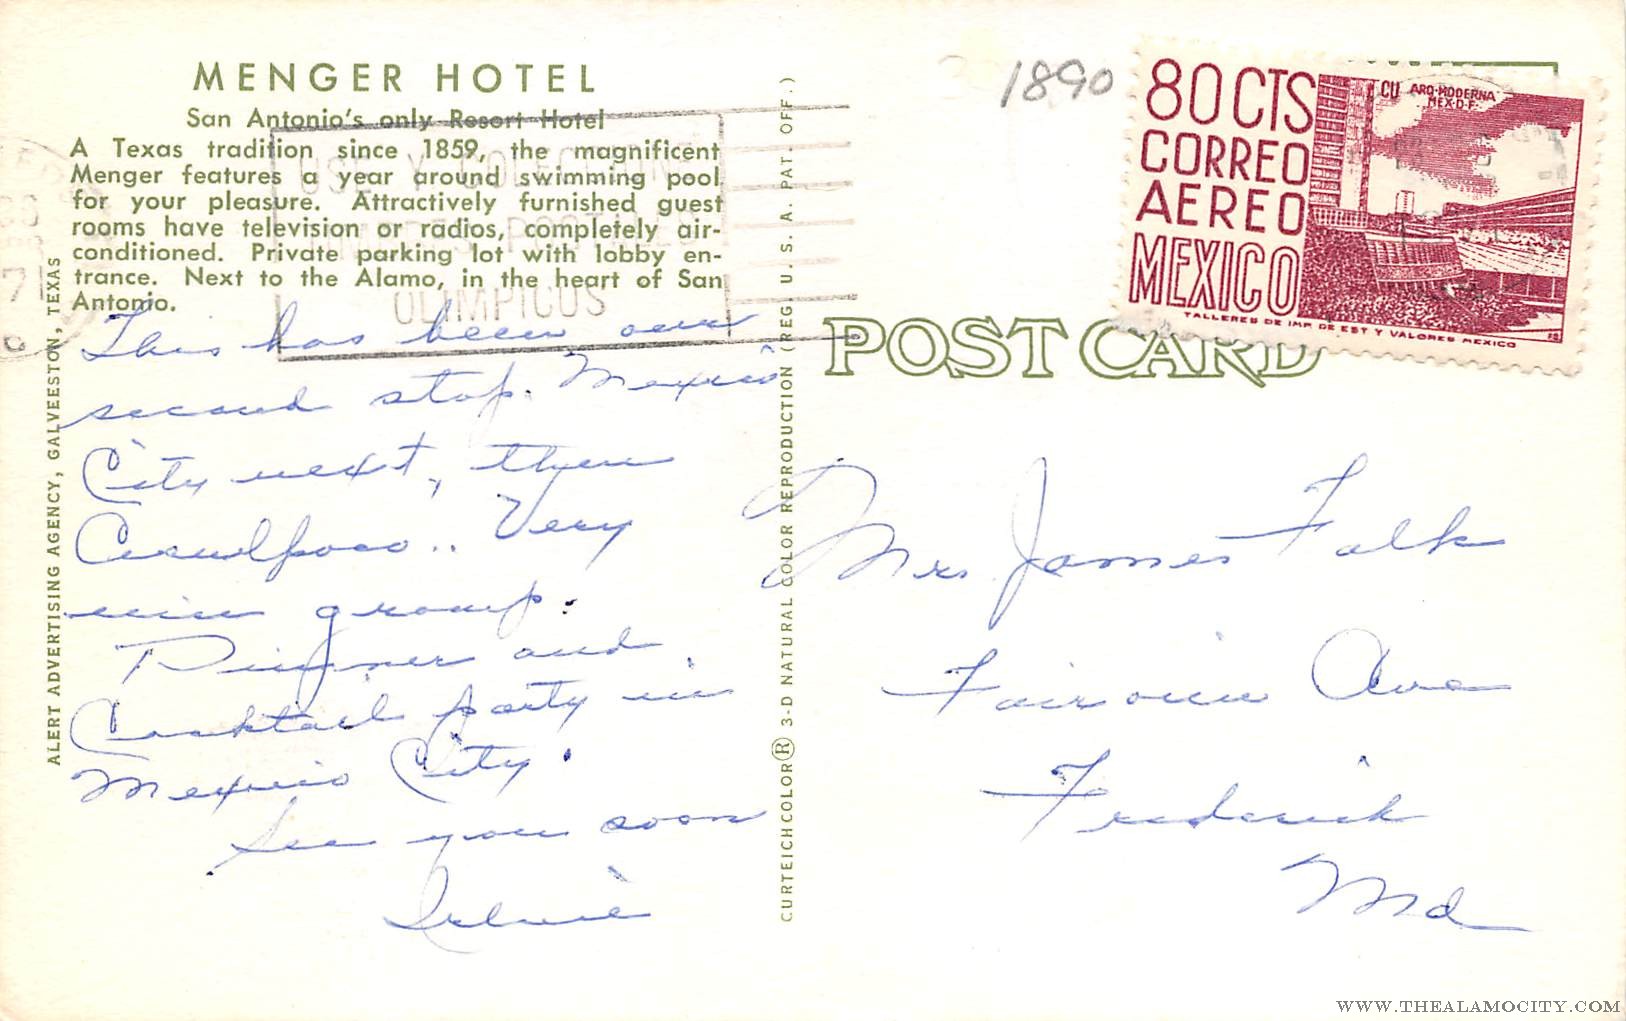 MENGER HOTEL
San Antonio's only Resort Hotel
A Texas tradition since 1859, the magnificent
Menger features a year around swimming pool
for your pleasure. Attractively furnished guest
rooms have television or radios, completely air-
conditioned. Private parking lot with lobby en-
trance. Next to the Alamo, in the heart of San
Antonio.
This has been our
second stop. Mexico
City next, then
.. Very
group.
Dinner and
Cocktail party in
Mexico City.
See you soon
ALERT ADVERTISING AGENCY, GALVEESTON, TEXAS
CURTEICHCOLOR® 3-D NATURAL COLOR REPRODUCTION (REG. U. S. A. PAT. OFF.)
OLIMPICOS
1890
80 CTS
CORREO
AEREO
MEXICO
CU ARQ-MODERNA
MEX-D-F-
TALLERES DE IMP. DE EST Y VALORES MEXICO
POST CARD
Mrs James Falk
Fairview Ave
Frederick
Md
WWW.THEALAMOCITY.COM